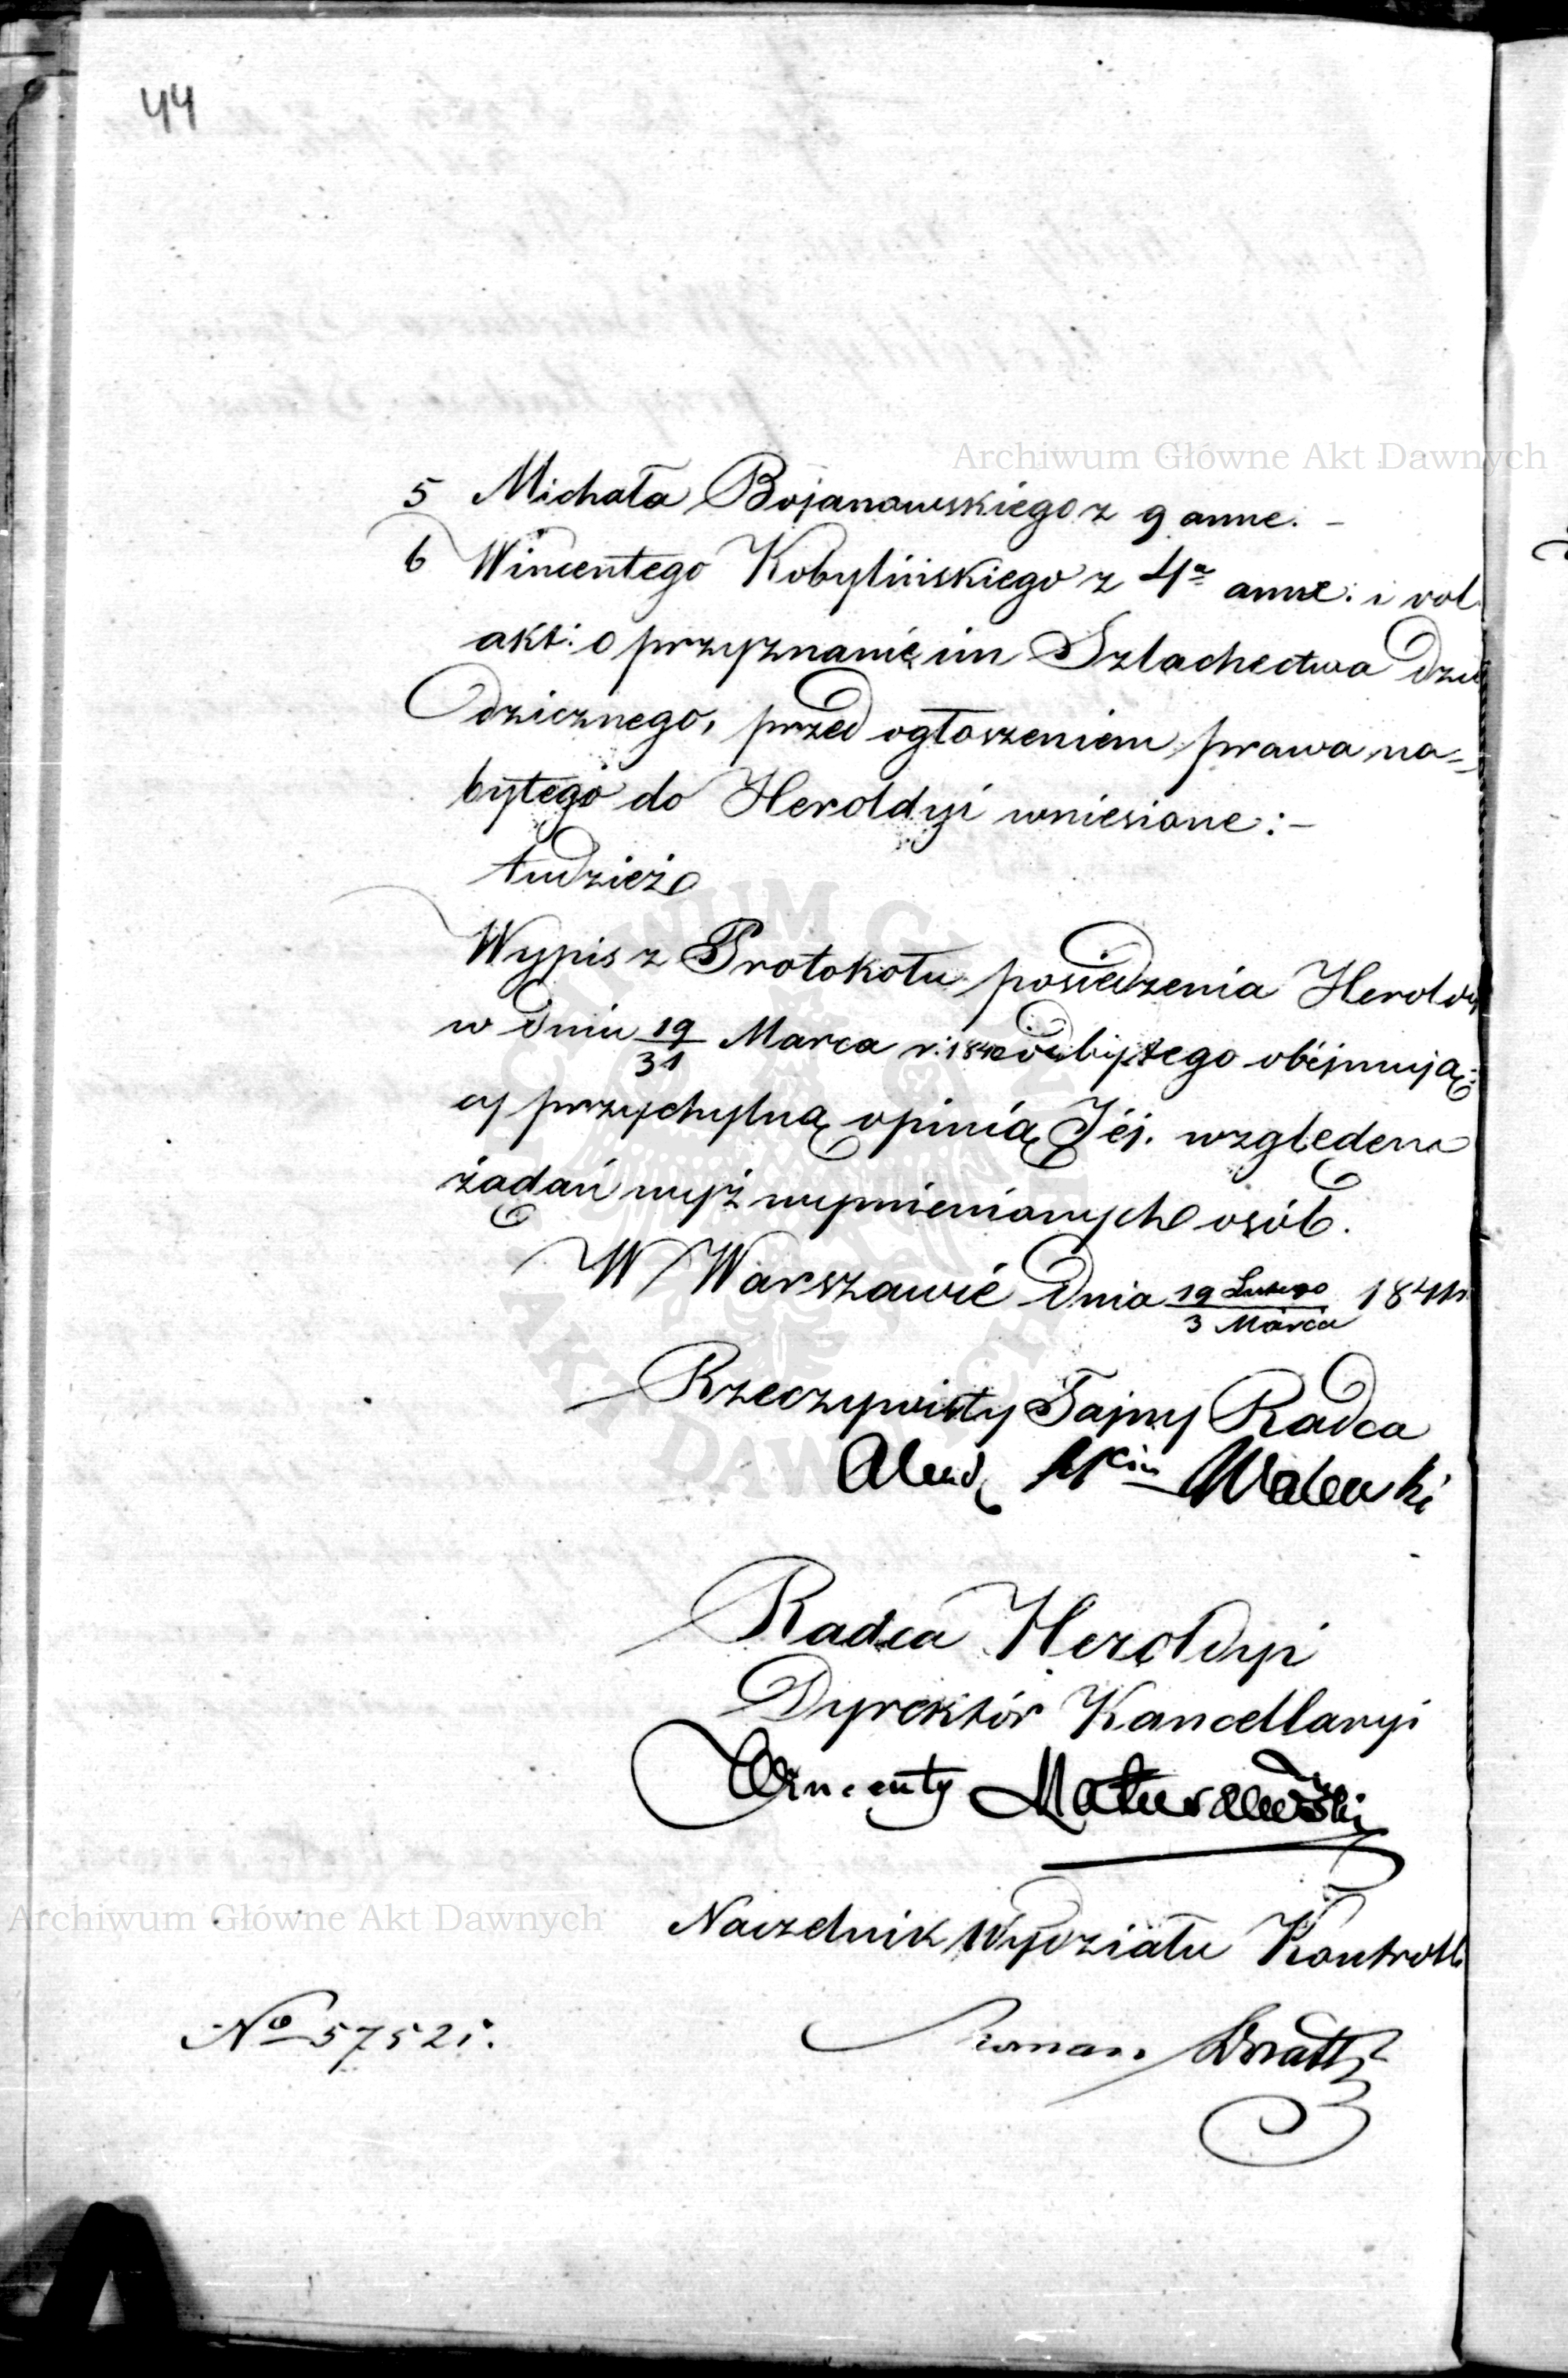 44
Archiwum Główne Akt Dawnych
5 Michała Bojanowskiego z 9 anne. –
6 Wincentego Kobylińskiego z 4ª anne: i vol
akt: o przyznanie im Szlachectwa dzie
dzicznego, przed ogłoszeniem prawa na=
bytego do Heroldyi wniesione: –
tudzież
Wypis z Protokołu posiedzenia Heroldy
w dniu 19/31 Marca r: 1840 odbytego obéjmują=
cy przychylną opinią Jéj. względem
żądań wyż wymienionych osób.
W Warszawie dnia 19 Lutego/3 Marca 1841 r
Rzeczywisty Tajny Radca
Walewski
Radca Heroldyi
Dyrektór Kancellaryi
Wincenty Matuszewski
Archiwum Główne Akt Dawnych
Naczelnik Wydziału Kontroll
Nº 57521.
Roman